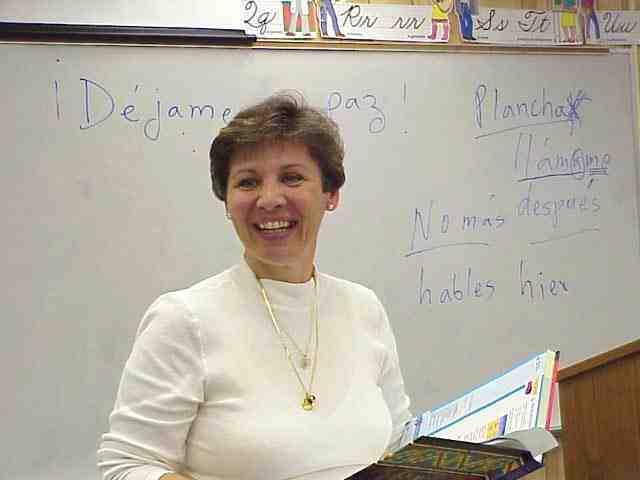 Qq Rr rr Ss Tt Uu
¡Déjame paz!
Plancha
llámame
después
No más
hables hier